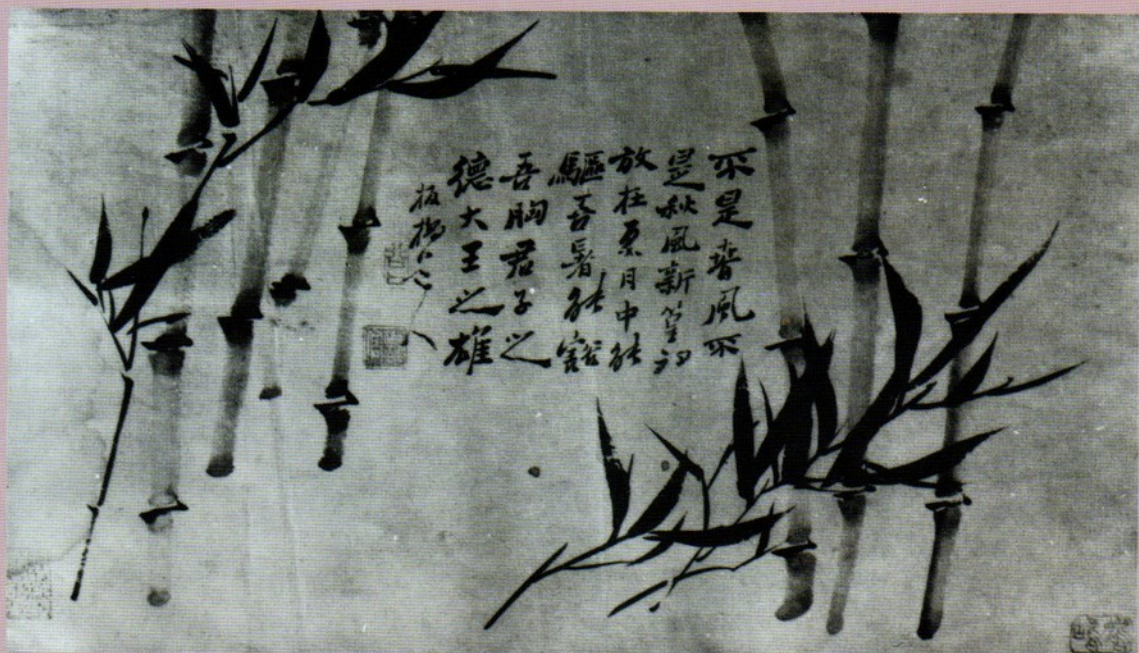 不是春風不
是秋風新篁初
放在夏月中能
驅吾暑能豁
吾胸君子之
德大王之雄
板橋